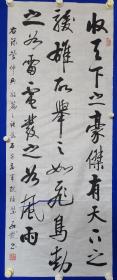 收天下之豪傑有天下之
駿雄故舉之如飛鳥動
之如雷電發之如風雨